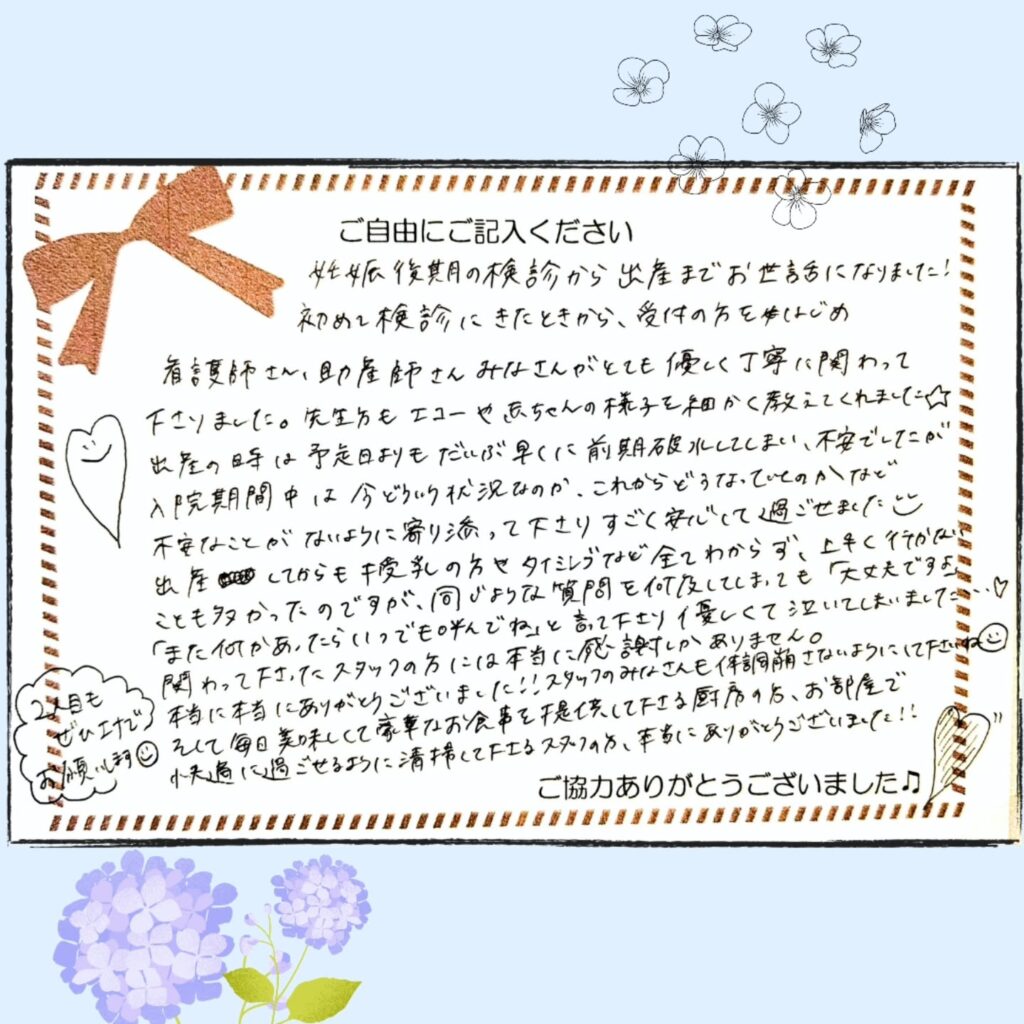 ご自由にご記入ください
妊娠後期の検診から出産までお世話になりました!
初めて検診にきたときから、受付の方をはじめ
看護師さん、助産師さんみなさんがとても優しく丁寧に関わって
下さりました。先生方もエコーや赤ちゃんの様子を細かく教えてくれました☆
出産の時は予定日よりもだいぶ早くに前期破水してしまい、不安でしたが
入院期間中は今どういう状況なのか、これからどうなっていくのかなど
不安なことがないように寄り添って下さりすごく安心して過ごせました
出産してからも授乳の方やタイミングなど全てわからず、上手く行かない
ことも多かったのですが、同じような質問を何度してしまっても「大丈夫ですよ」
「また何かあったらいつでも呼んでね」と言って下さり優しくて泣いてしまいました…♡
関わって下さったスタッフの方には本当に感謝しかありません。
本当に本当にありがとうございました!!スタッフのみなさんも体調崩さないようにして下さいね
そして毎日美味しくて豪華なお食事を提供して下さる厨房の方、お部屋で
快適に過ごせるように清掃して下さるスタッフの方、本当にありがとうございました!!
2人目も
ぜひ
お願いします
ご協力ありがとうございました♫